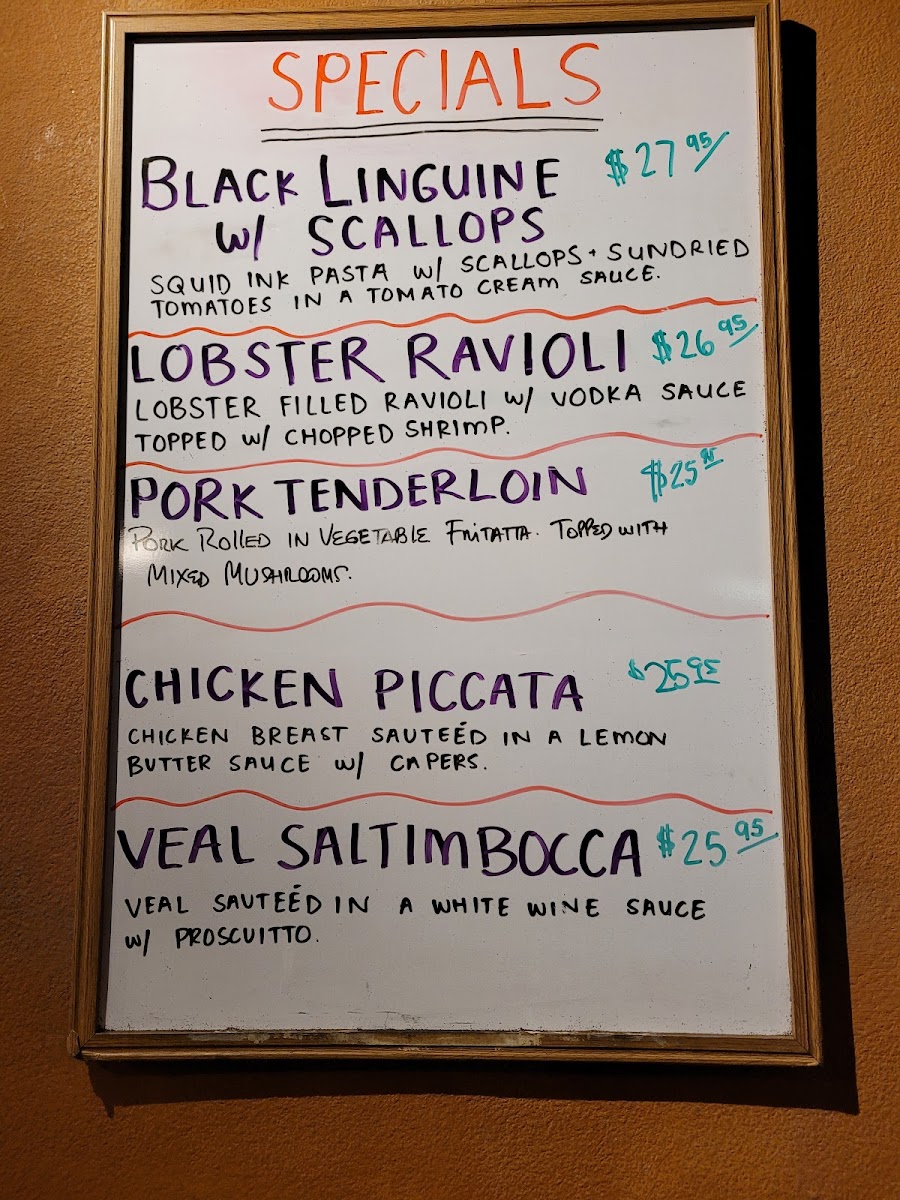 SPECIALS
BLACK LINGUINE $27 95/
W/ SCALLOPS
SQUID INK PASTA W/ SCALLOPS + SUNDRIED
TOMATOES IN A TOMATO CREAM SAUCE.
LOBSTER RAVIOLI $26 95/
LOBSTER FILLED RAVIOLI W/ VODKA SAUCE
TOPPED W/ CHOPPED SHRIMP.
PORK TENDERLOIN $25
PORK ROLLED IN VEGETABLE FRITATTA. TOPPED WITH
MIXED MUSHROOMS.
CHICKEN PICCATA $25 95
CHICKEN BREAST SAUTEÉD IN A LEMON
BUTTER SAUCE W/ CAPERS.
VEAL SALTIMBOCCA $25 95/
VEAL SAUTEÉD IN A WHITE WINE SAUCE
W/ PROSCUITTO.